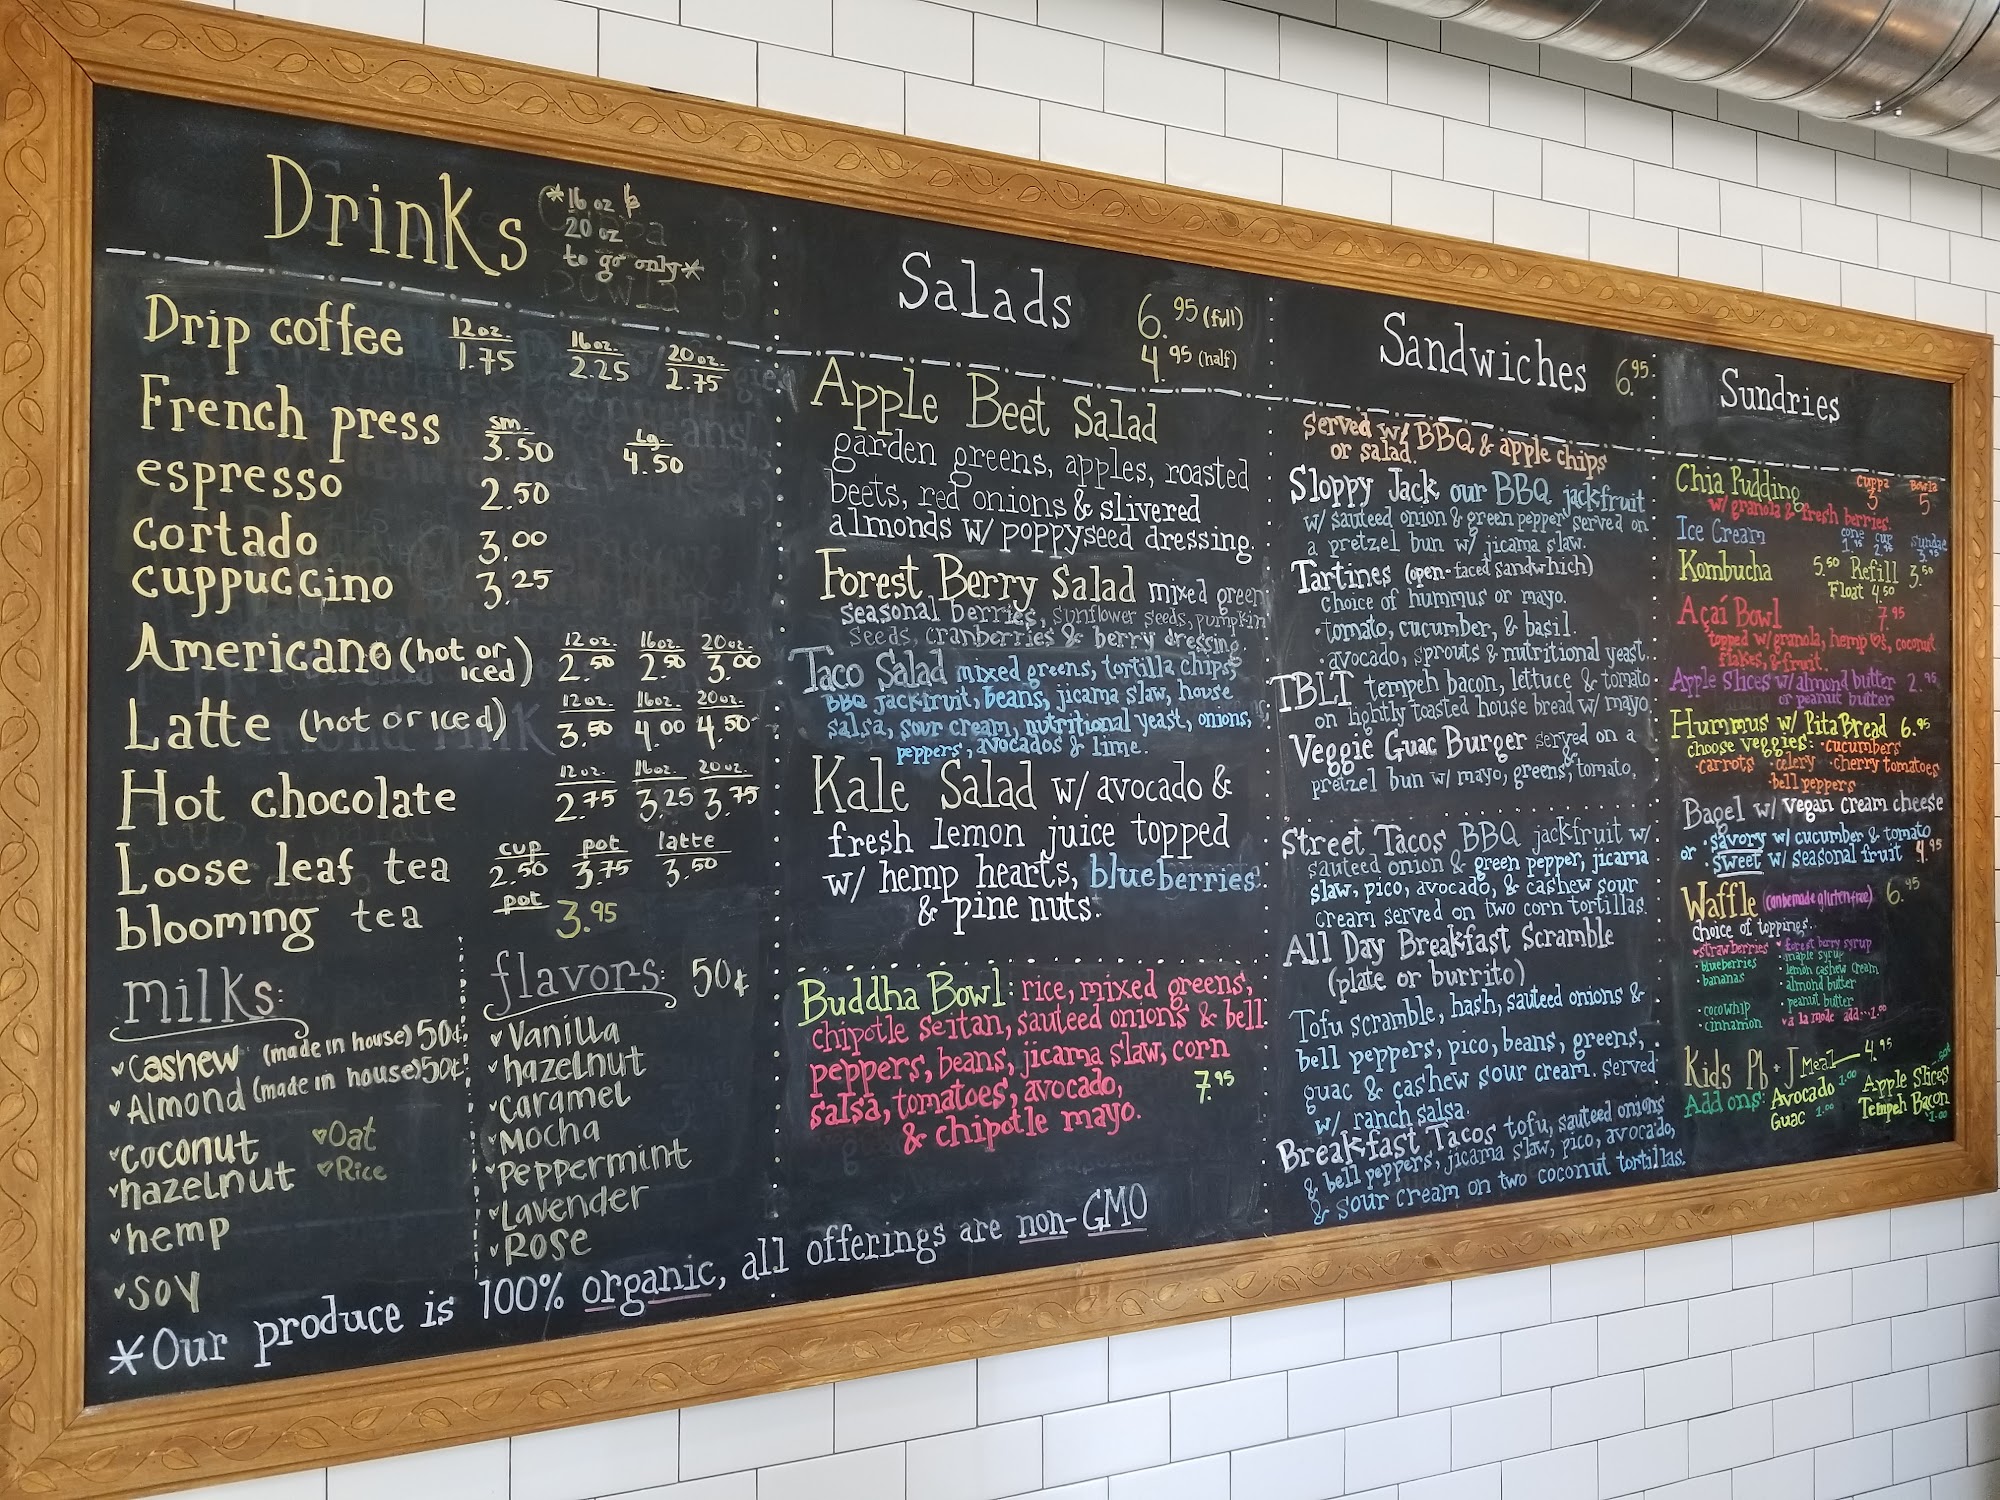 Drinks
*16 oz &
20 oz
to go only*
Drip coffee 12oz. 1.75 16oz. 2.25 20oz. 2.75
French press sm. 3.50 Lg. 4.50
espresso 2.50
cortado 3.00
cuppuccino 3.25
Americano (hot or iced) 12oz. 2.50 16oz. 2.50 20oz. 3.00
Latte (hot or iced) 12oz. 3.50 16oz. 4.00 20oz. 4.50
Hot chocolate 12oz. 2.75 16oz. 3.25 20oz. 3.75
Loose leaf tea cup 2.50 pot 3.75 latte 3.50
blooming tea pot 3.95
milks:
Cashew (made in house) 50¢
Almond (made in house) 50¢
coconut
hazelnut
hemp
soy
Oat
Rice
flavors: 50¢
Vanilla
hazelnut
caramel
Mocha
Peppermint
Lavender
Rose
*Our produce is 100% organic, all offerings are non-GMO
Salads 6.95 (full)
4.95 (half)
Apple Beet Salad
garden greens, apples, roasted
beets, red onions & slivered
almonds w/ poppyseed dressing.
Forest Berry Salad mixed green
seasonal berries, sunflower seeds, pumpkin
seeds, cranberries & berry dressing.
Taco Salad mixed greens, tortilla chips,
BBQ jackfruit, beans, jicama slaw, house
salsa, sour cream, nutritional yeast, onions,
peppers, avocados & lime.
Kale Salad w/ avocado &
fresh lemon juice topped
w/ hemp hearts, blueberries
& pine nuts.
Buddha Bowl: rice, mixed greens,
chipotle seitan, sauteed onions & bell
peppers, beans, jicama slaw, corn
salsa, tomatoes, avocado, 7.95
& chipotle mayo.
Sandwiches 6.95
Served w/ BBQ & apple chips
or salad.
Sloppy Jack our BBQ jackfruit
w/ sauteed onion & green pepper served on
a pretzel bun w/ jicama slaw.
Tartines (open-faced sandwhich)
choice of hummus or mayo.
·tomato, cucumber, & basil.
·avocado, sprouts & nutritional yeast.
TBLT tempeh bacon, lettuce & tomato
on lightly toasted house bread w/ mayo
Veggie Guac Burger served on a
pretzel bun w/ mayo, greens, tomato,
Street Tacos BBQ jackfruit w/
sauteed onion & green pepper, jicama
slaw, pico, avocado, & cashew sour
cream served on two corn tortillas.
All Day Breakfast Scramble
(plate or burrito)
Tofu scramble, hash, sauteed onions &
bell peppers, pico, beans, greens,
guac & cashew sour cream. served
w/ ranch salsa.
Breakfast Tacos tofu, sauteed onions
& bell peppers, jicama slaw, pico, avocado,
& sour cream on two coconut tortillas.
Sundries
Chia Pudding cuppa 3 Bowla 5
w/ granola & fresh berries.
Ice Cream cone 1.95 cup 2.95 sundae 3.95
Kombucha 5.50 Refill 3.50
Float 4.50
Açaí Bowl 7.95
topped w/ granola, hemp ♡s, coconut
flakes, & fruit.
Apple Slices w/ almond butter 2.95
or peanut butter
Hummus w/ Pita Bread 6.95
choose veggies: ·cucumbers
·carrots ·celery ·cherry tomatoes
·bell peppers
Bagel w/ vegan cream cheese
·savory w/ cucumber & tomato
or ·sweet w/ seasonal fruit 4.95
Waffle (can be made gluten-free) 6.95
choice of toppings.
strawberries
·blueberries
·bananas
·cocowhip
·cinnamon
forest berry syrup
·maple syrup
·lemon cashew cream
·almond butter
·peanut butter
à la mode add...1.00
Kids Pb + J Meal 4.95
Add ons: Avocado 1.00 Apple Slices .50¢
Guac 1.00 Tempeh Bacon 1.00